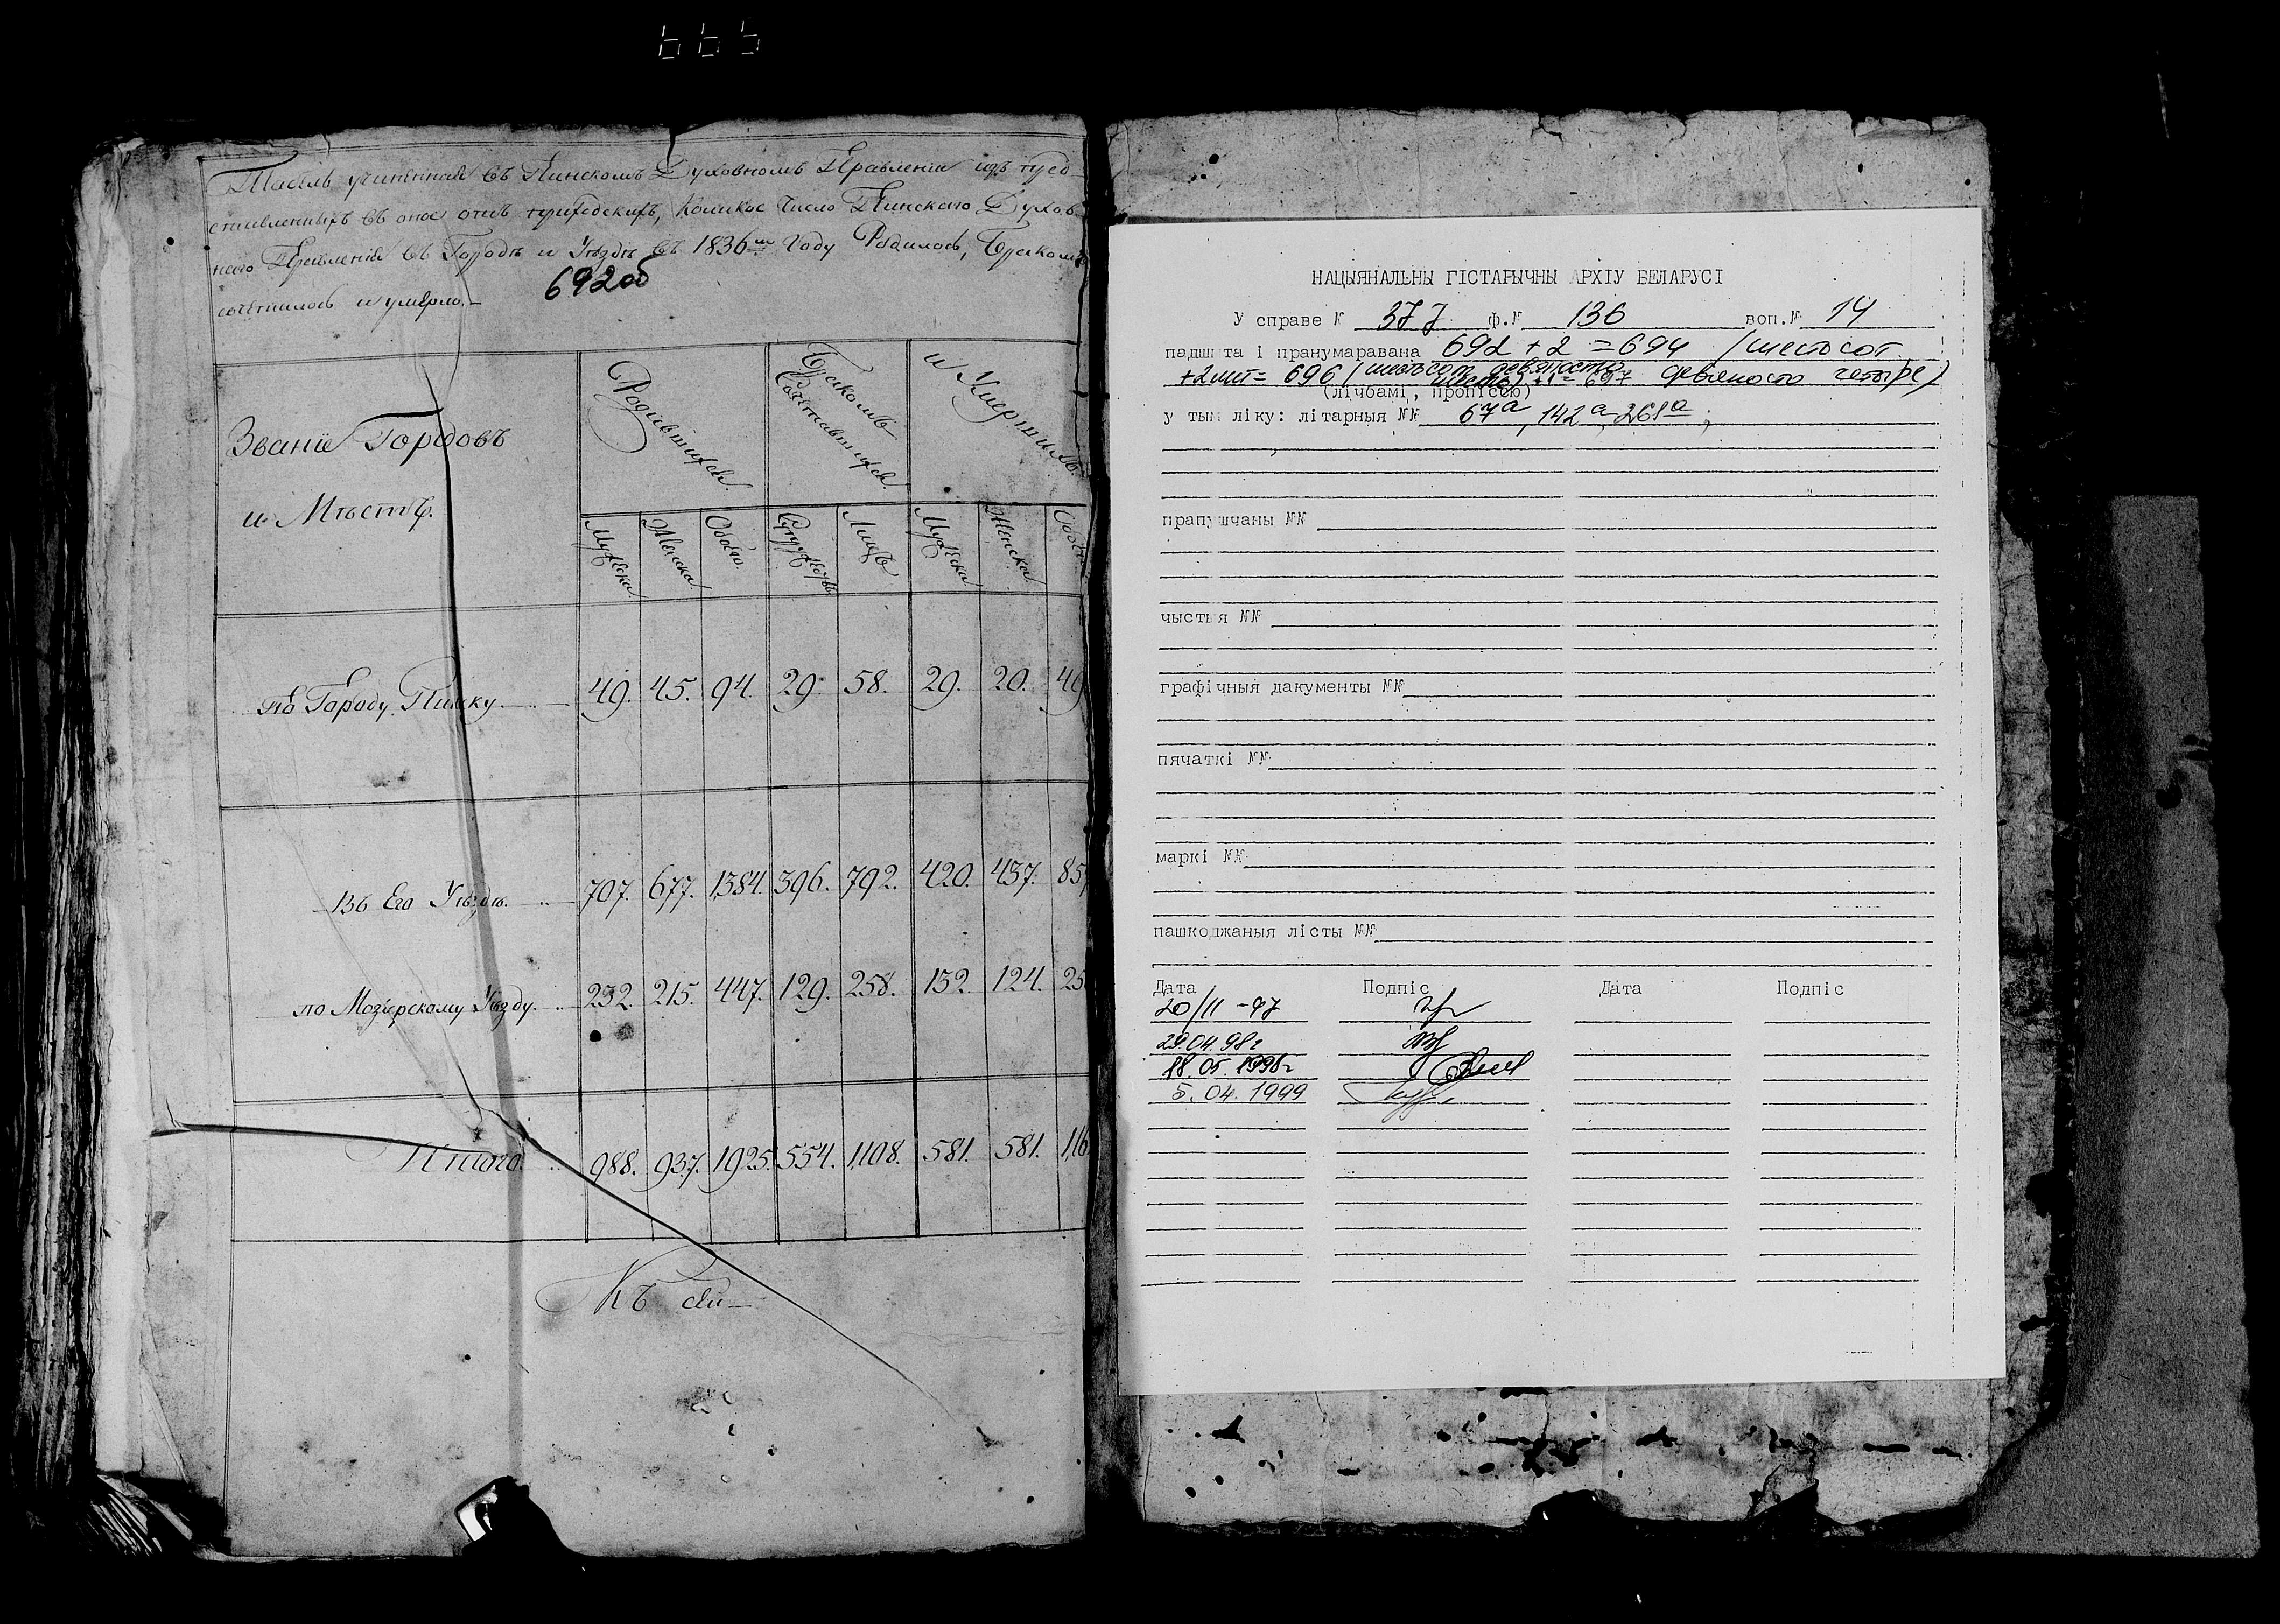 665
Табель учиненная въ Пинскомъ Духовномъ Правленіи изъ пред-
ставленныхъ въ оное отъ приходскихъ, Коликое Число Пинскаго Духов-
наго Правленія въ Городѣ и Уѣздѣ въ 1836м Году Родилось, Бракомъ
сочеталось и умерло.—
692об
Званіе Городовъ
и Мѣстъ.
Родившихся.
Бракомъ Сочетавшихся.
и Умершихъ.
Мужеска Женска Обоего. Супружествъ Лицъ Мужеска Женска Обоег
по Городу Пинску 49. 45. 94. 29. 58. 29. 20. 49
Въ Его Уѣздѣ. 707. 677. 1384. 396. 792. 420. 437. 857
по Мозырскому Уѣзду. 232. 215. 447. 129. 258. 132. 124. 25
Итого. 988. 937. 1925. 554. 1108. 581. 581. 116
Къ сей
НАЦЫЯНАЛЬНЫ ГІСТАРЫЧНЫ АРХІУ БЕЛАРУСІ
У справе № 377 ф.№ 136 воп.№ 14
падшыта і пранумаравана 692 + 2 = 694 /шестьсот
+2лит= 696 (шестьсот девяносто шесть) +1 = 697 девяносто четыре)
(лічбамі, пропісею)
у тым ліку: літарныя №№ 67а, 142а, 261а;
прапушчаны №№
чыстыя №№
графічныя дакументы №№
пячаткі №№
маркі №№
пашкоджаныя лісты №№
Дата Подпіс Дата Подпіс
20/II -97
29.04.98г
18.05.1998г
5.04.1999